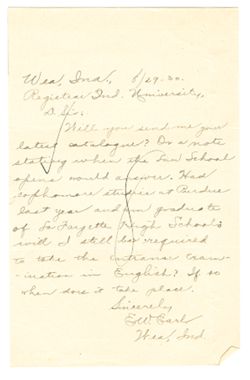 Wea, Ind., 8/29-30.
Registrar Ind. University,
D. Sir:
Will you send me your
latest catalogue? Or a note
stating when the Law School
opens would answer. Had
sophomore studies at Purdue
last year and am graduate
of La Fayette High School.
will I still be required
to take the entrance exam-
ination in English? If so
when does it take place.
Sincerely
E.W. Earl
Wea, Ind.